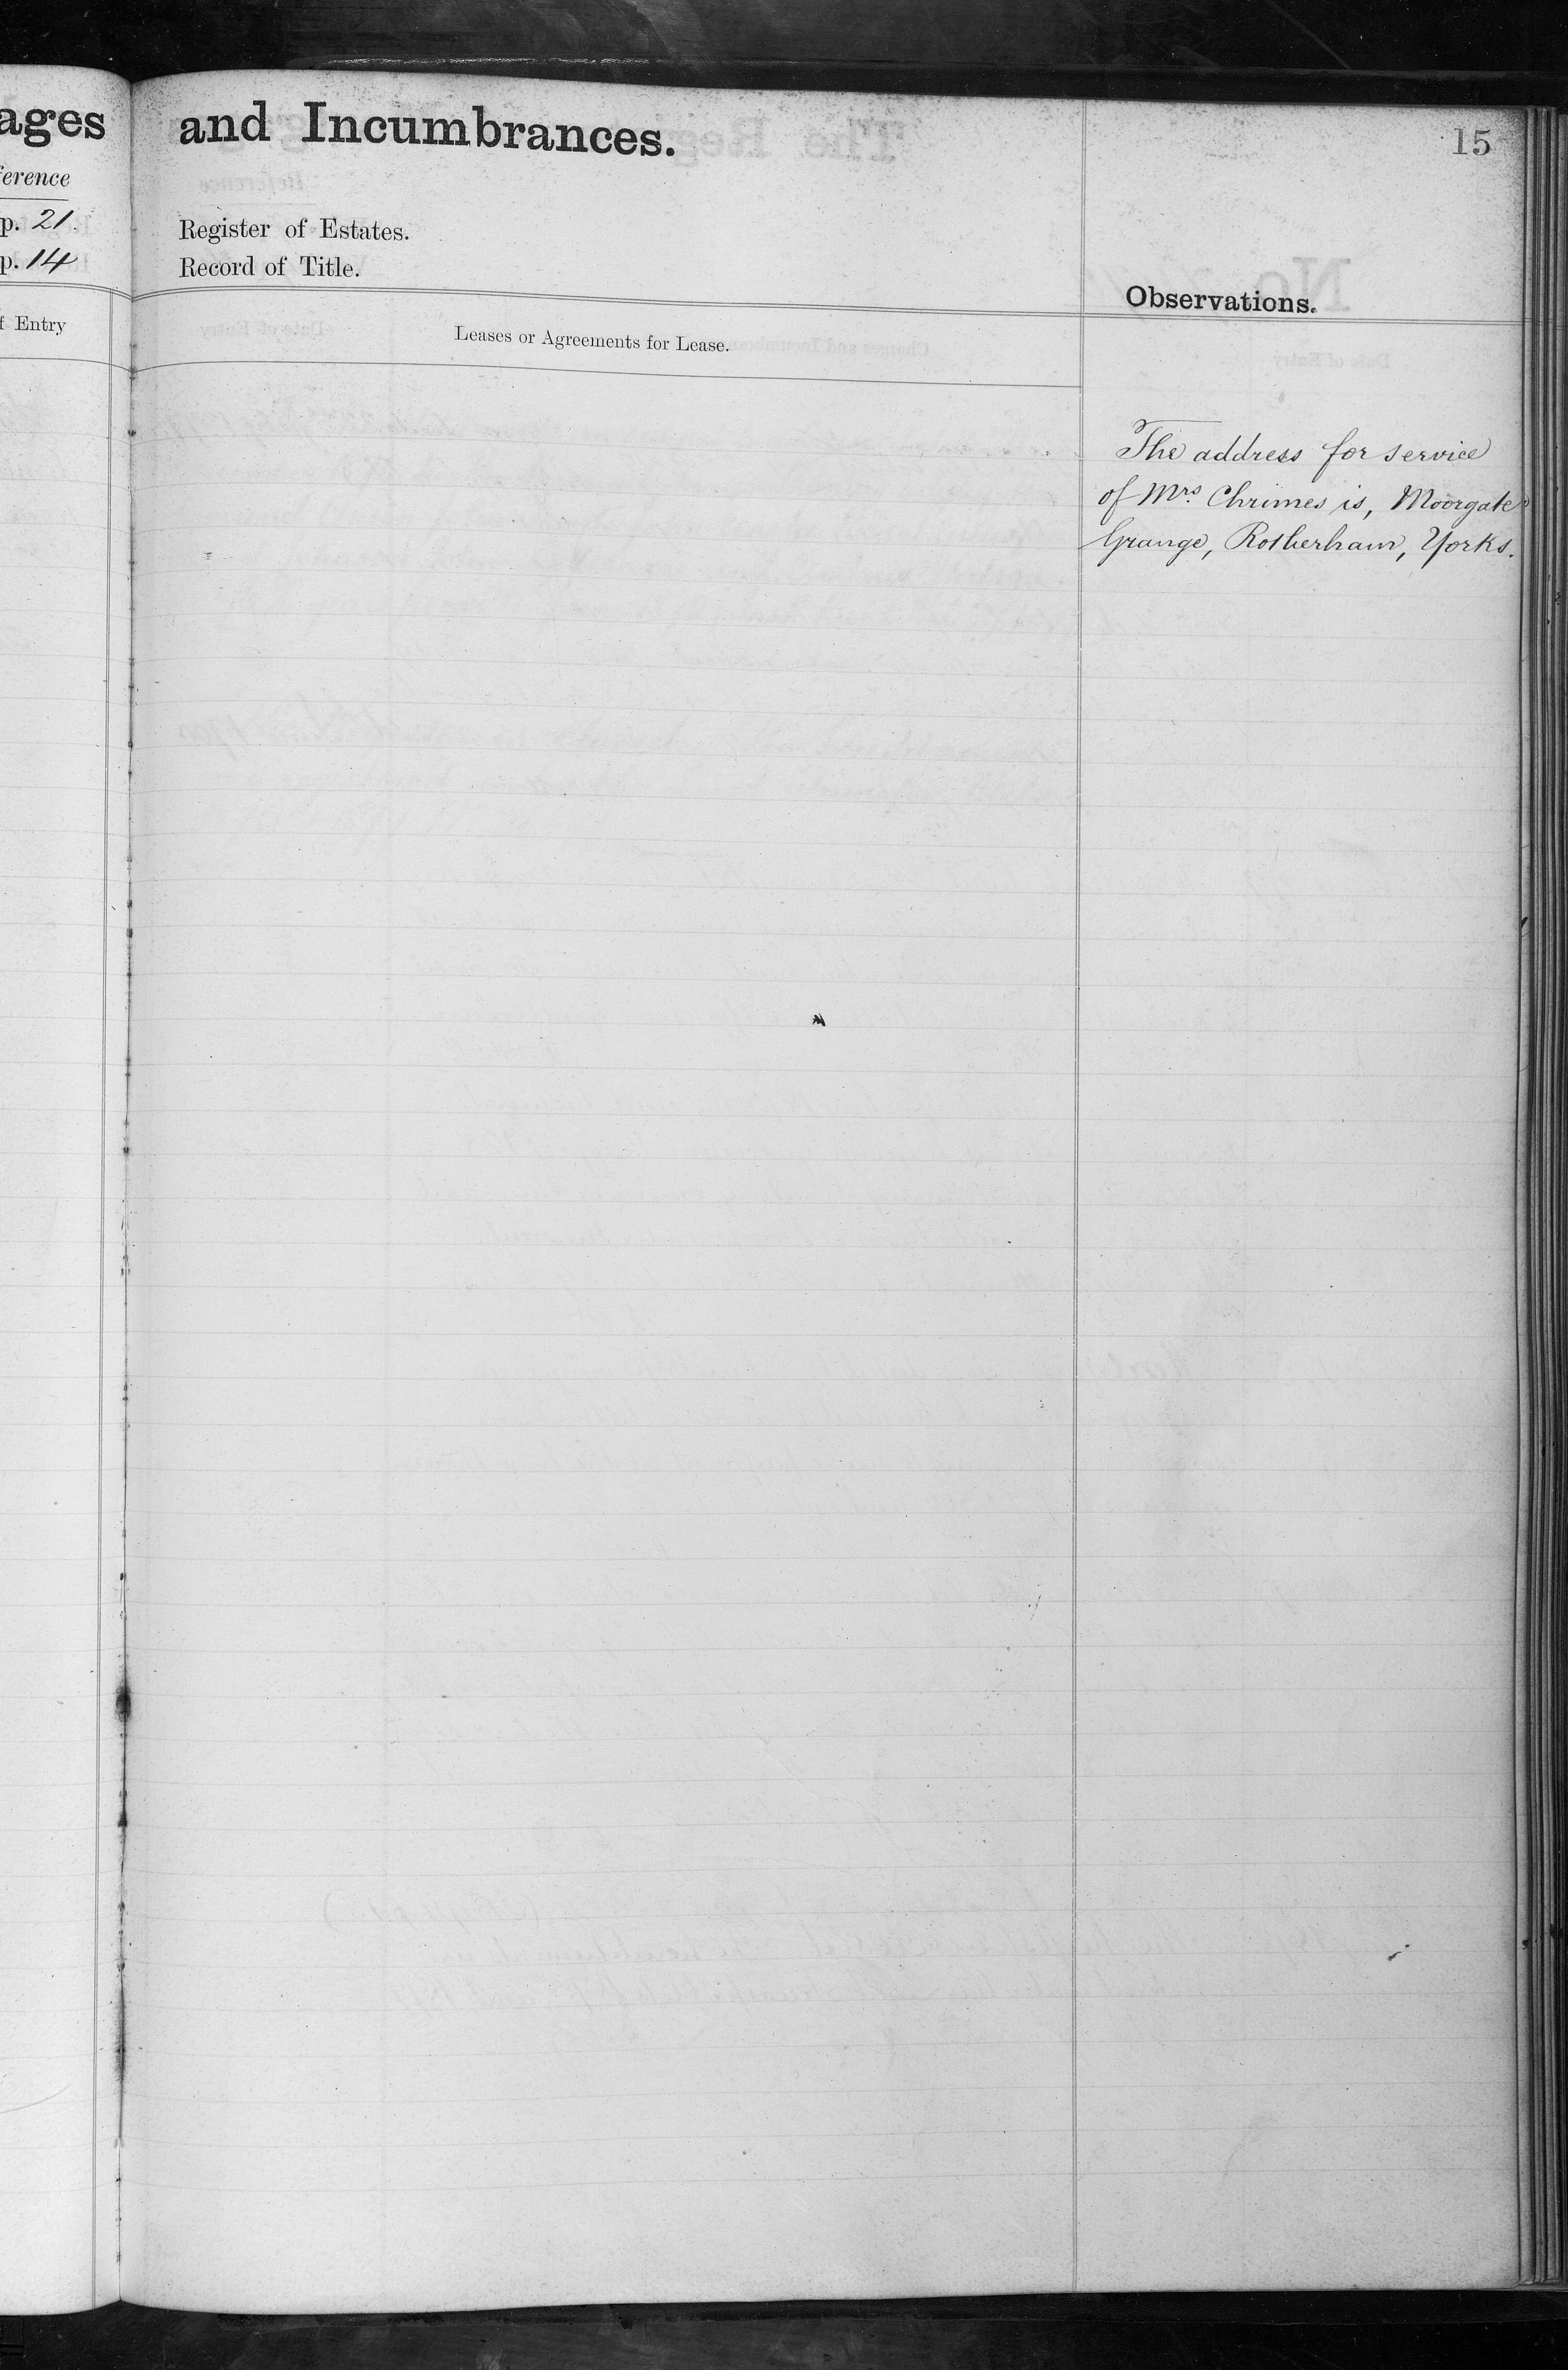 ages
ference
p. 21.
p. 14
f Entry
and Incumbrances.
15
Register of Estates.
Record of Title.
Observations.
Leases or Agreements for Lease.
The address for service
of Mrs. Chrimes is, Moorgate
Grange, Rotherham, Yorks.